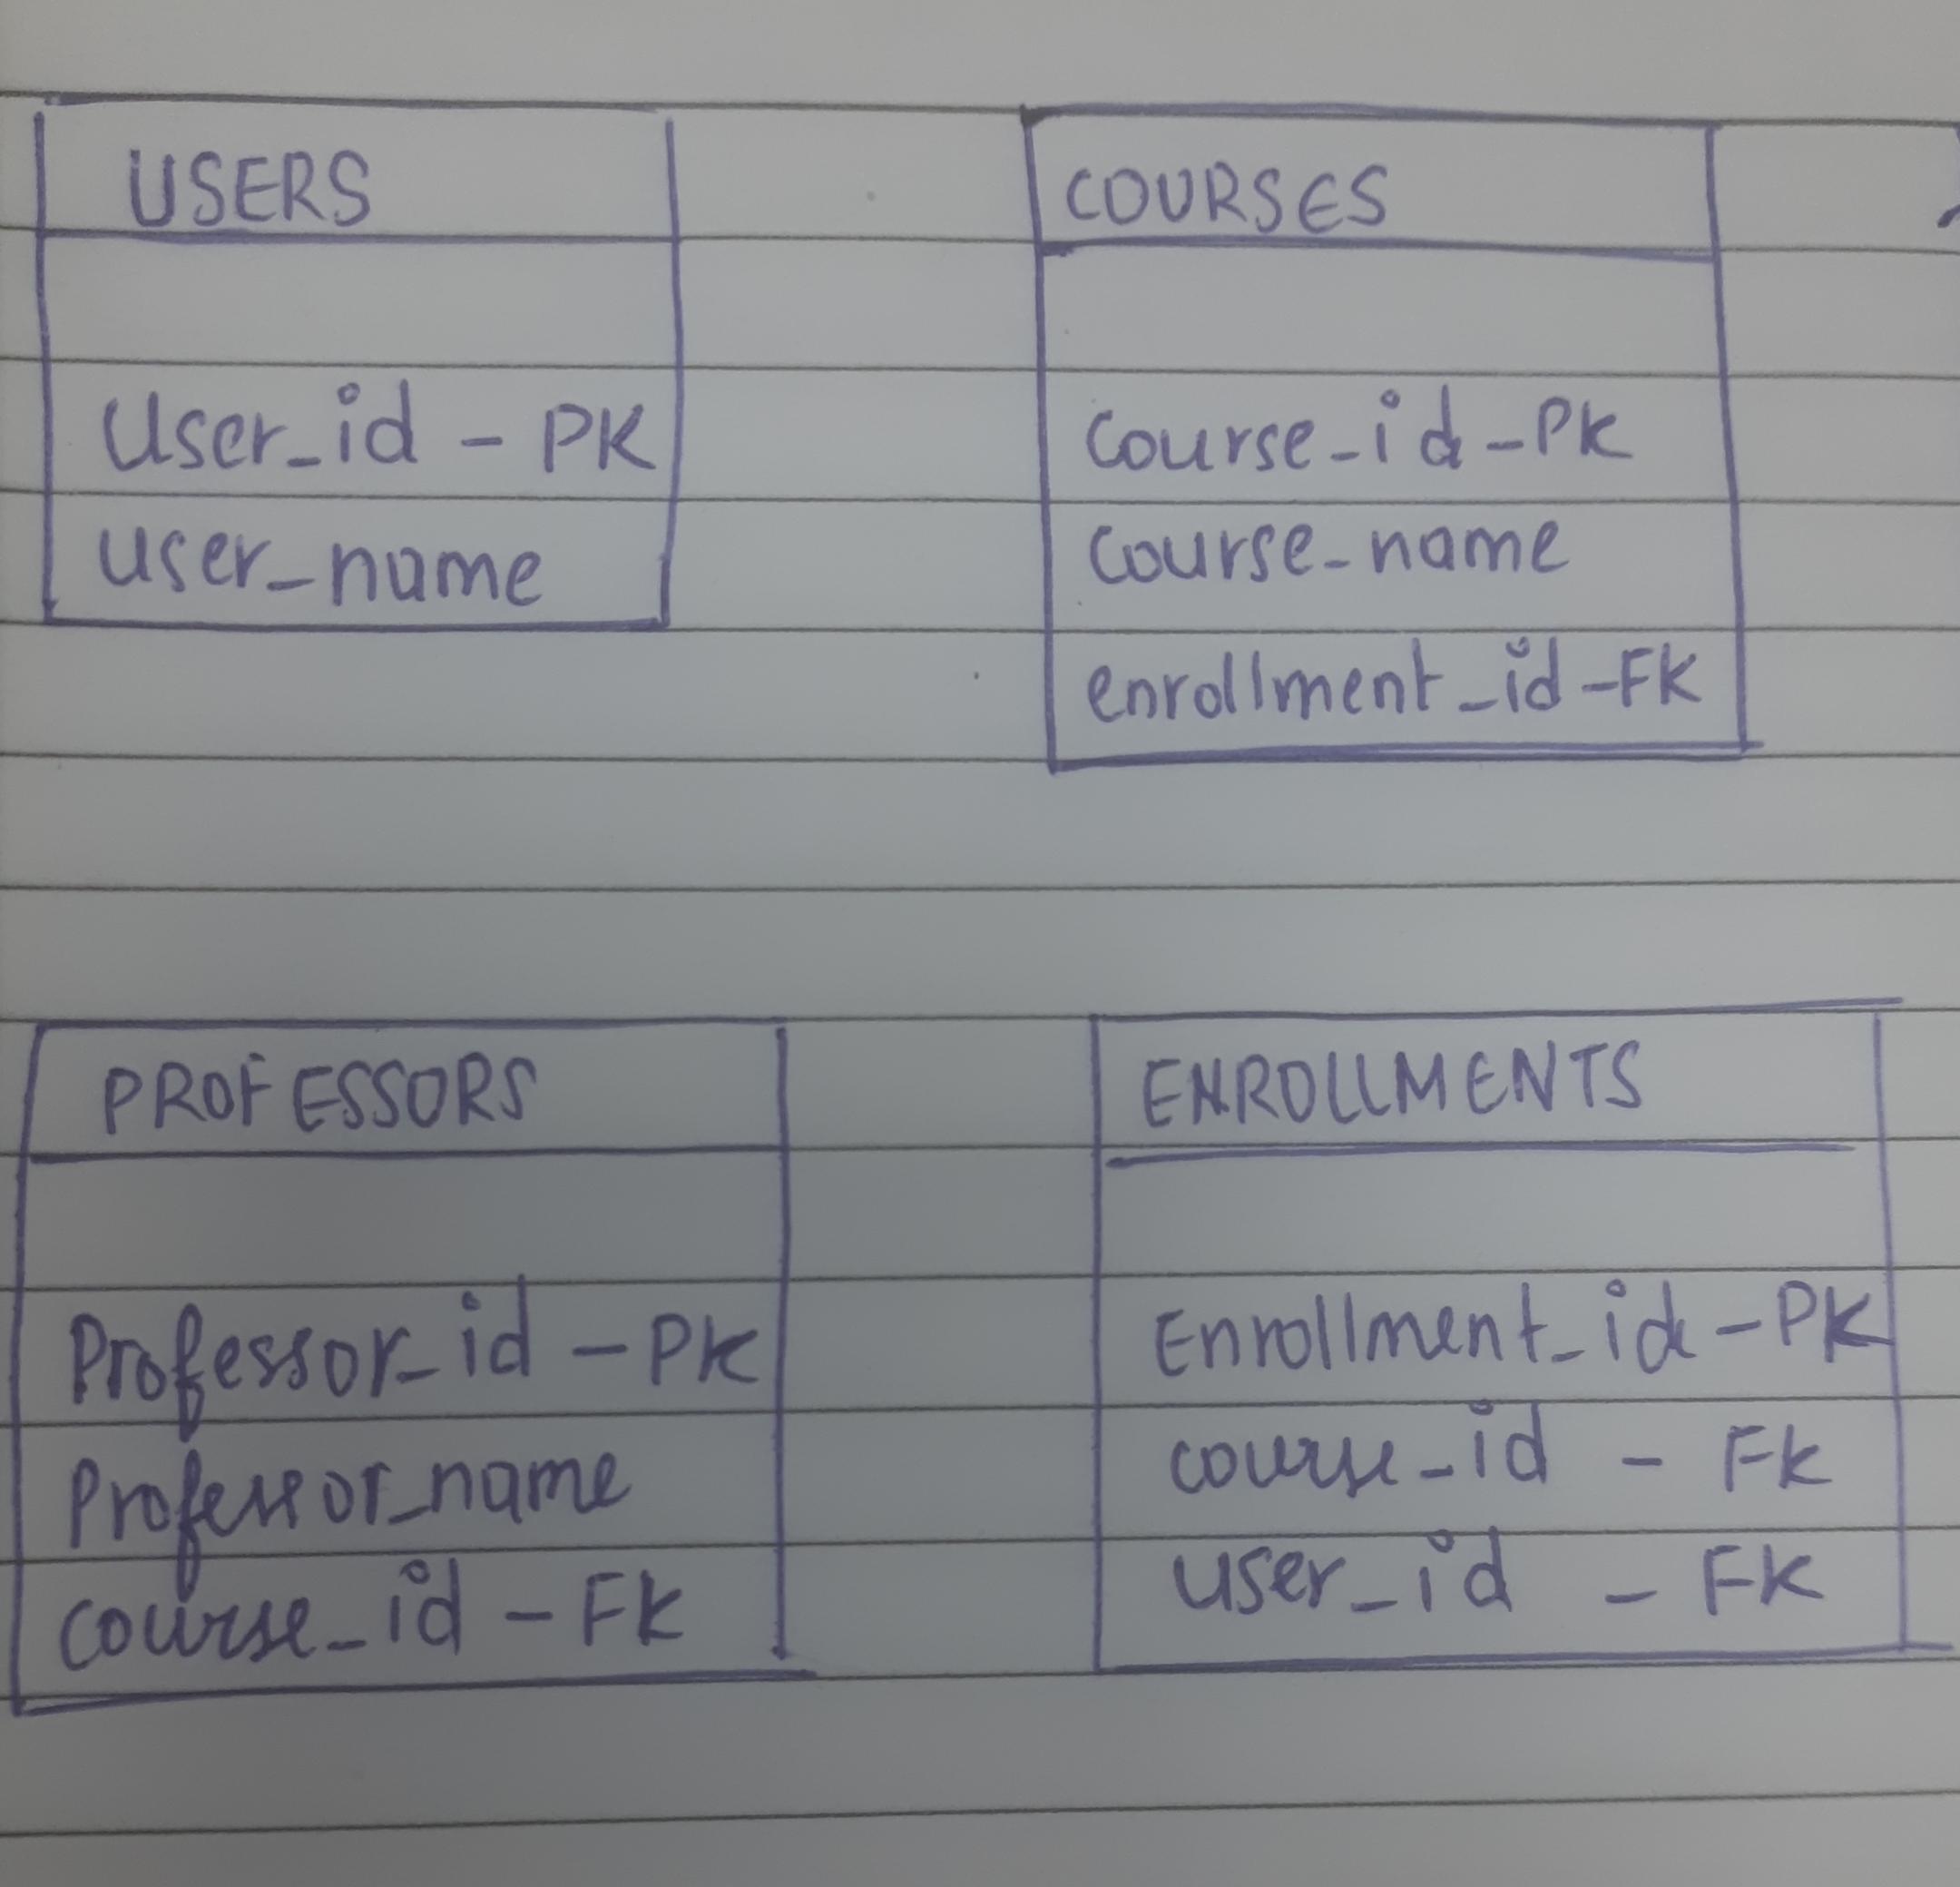 USERS
User_id - PK
user_name
COURSES
course_id - PK
course_name
enrollment_id - FK
PROFESSORS
Professor_id - PK
Professor_name
course_id - FK
ENROLLMENTS
Enrollment_id - PK
course_id - FK
user_id - FK